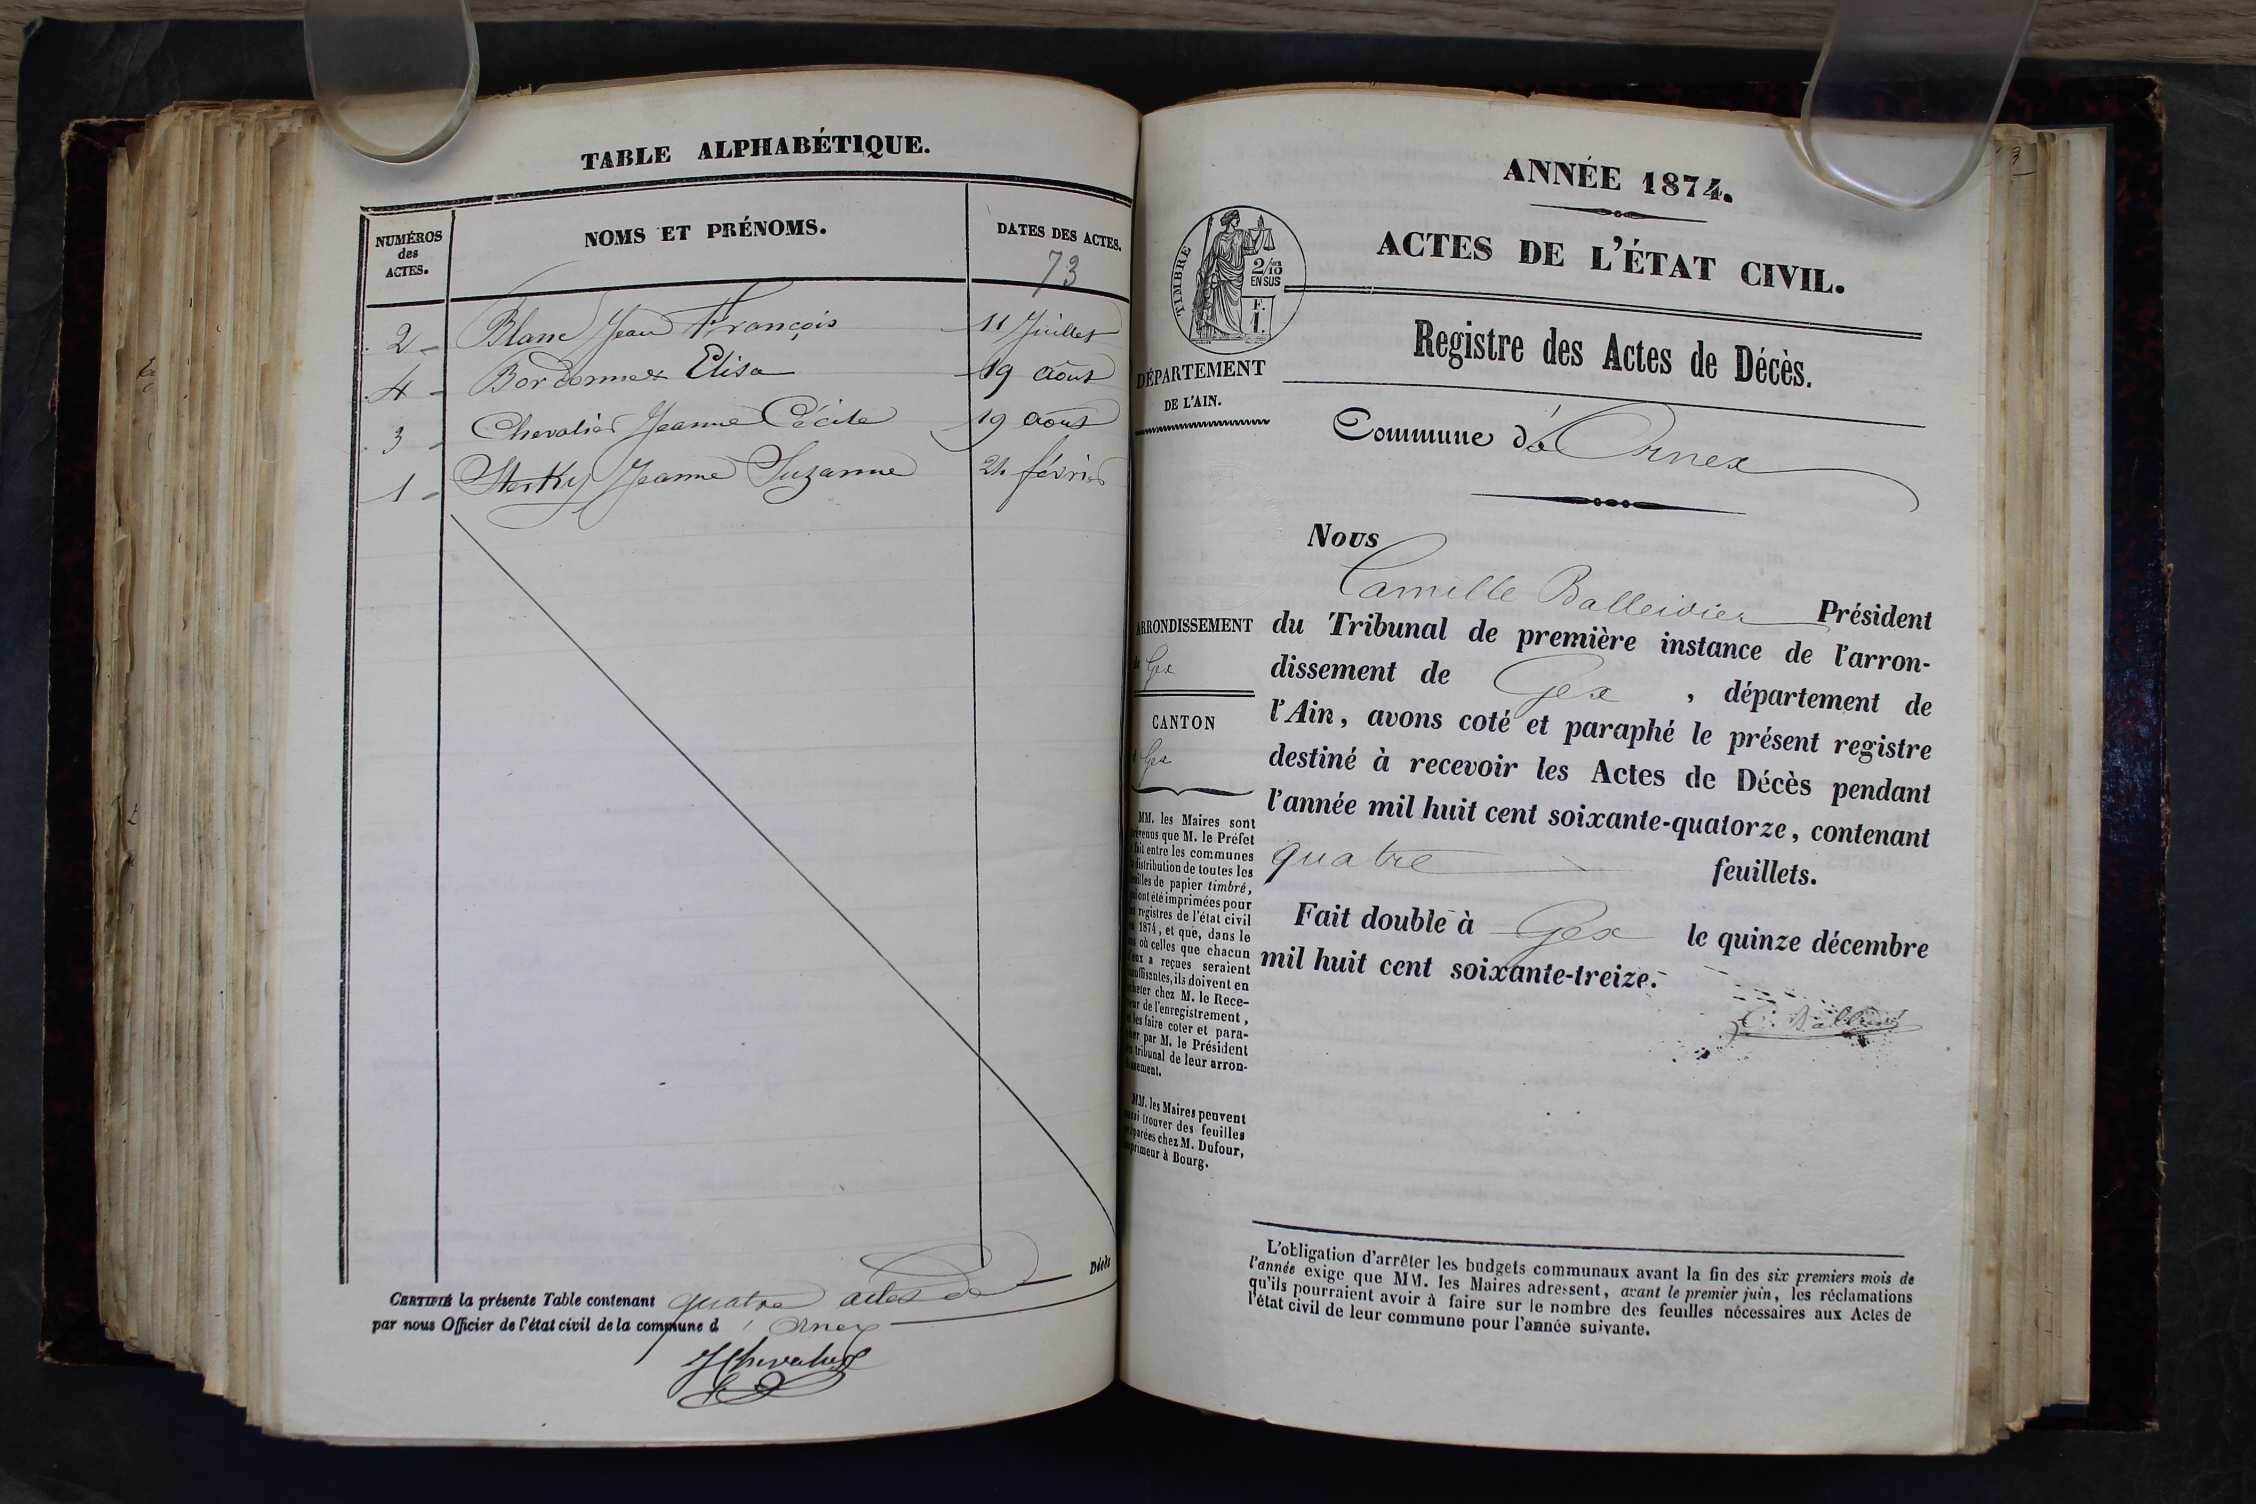 TABLE ALPHABÉTIQUE.
NUMÉROS des ACTES.
NOMS ET PRÉNOMS.
DATES DES ACTES.
73
2 Blanc Jean François 11 Juillet
4 Elisa 19 août
3 Chevalier Jeanne Cécile 19 août
1 Sterky Jeanne Suzanne 21 février
Décès
CERTIFIÉ la présente Table contenant quatre actes de
par nous Officier de l'état civil de la commune d' Ornex
JChevalier
ANNÉE 1874.
ACTES DE L'ÉTAT CIVIL.
TIMBRE
2/10
EN SUS
F.
1.
Registre des Actes de Décès.
DÉPARTEMENT
DE L'AIN.
Commune d' Ornex
Nous
Camille Balleidier Président
du Tribunal de première instance de l'arron-
dissement de Gex, département de
l'Ain, avons coté et paraphé le présent registre
destiné à recevoir les Actes de Décès pendant
l'année mil huit cent soixante-quatorze, contenant
quatre feuillets.
Fait double à Gex le quinze décembre
mil huit cent soixante-treize.
ARRONDISSEMENT
de Gex
CANTON
Gex
MM. les Maires sont
prévenus que M. le Préfet
fait entre les communes
distribution de toutes les
feuilles de papier timbré,
qui ont été imprimées pour
les registres de l'état civil
1874, et que, dans le
cas où celles que chacun
d'eux a reçues seraient
insuffisantes, ils doivent en
acheter chez M. le Rece-
veur de l'enregistrement,
et les faire coter et para-
pher par M. le Président
du tribunal de leur arron-
dissement.
MM. les Maires peuvent
aussi trouver des feuilles
préparées chez M. Dufour,
imprimeur à Bourg.
L'obligation d'arrêter les budgets communaux avant la fin des six premiers mois de
l'année exige que MM. les Maires adressent, avant le premier juin, les réclamations
qu'ils pourraient avoir à faire sur le nombre des feuilles nécessaires aux Actes de
l'état civil de leur commune pour l'année suivante.